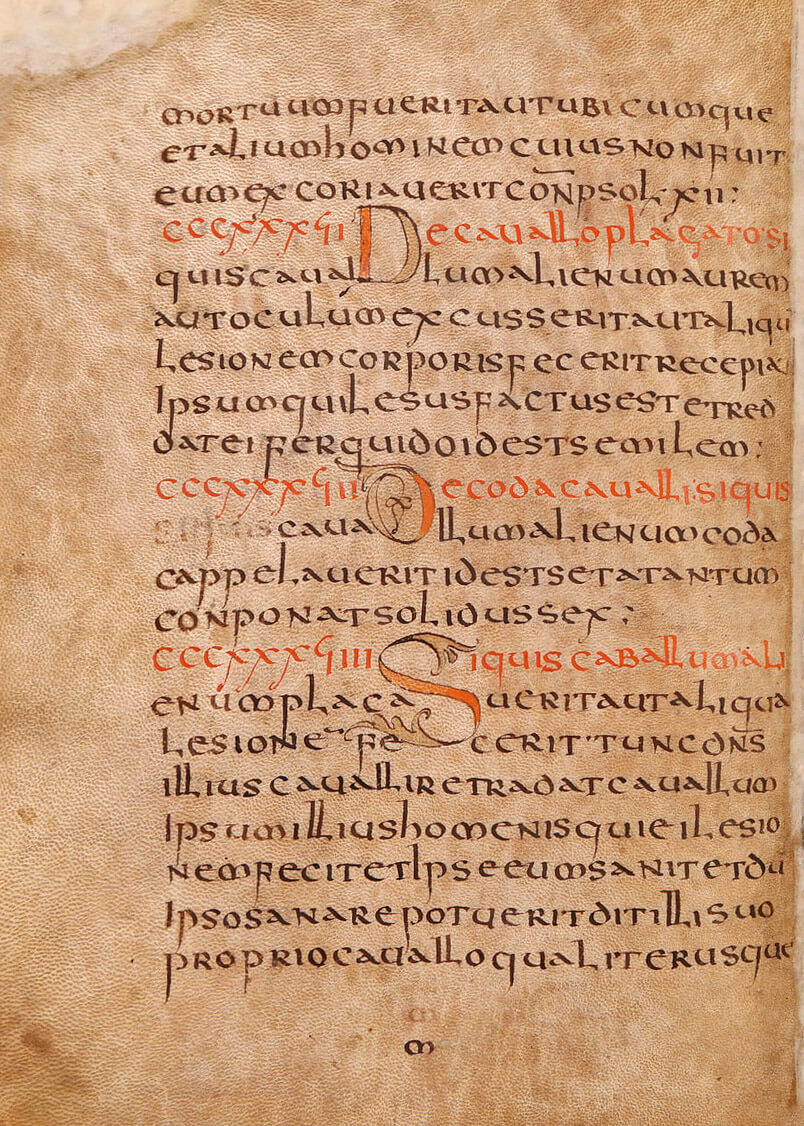 mortuumfueritautubicumque
etaliumhominemcuiusnonfuit
eumexcoriaueritcoñpsol·xii:
cccxxxҁıı Decaualloplagatosi
quiscauallumalienumaurem
autoculumexcusseritautaliqu
lesionemcorporisfeceritrecepia
ipsumquilesusfactusestetred
dateiferquidoidestsemilem:
cccxxxҁııı Decodacauallisiquis
cauallumalienumcoda
cappelaueritidestsetatantum
conponatsolidussex:
cccxxxҁıııı Siquiscaballumali
enumplacaueritautaliqua
lesione fececerit·tuncdñs
illiuscaualliretradatcauallum
ipsumilliushomenisquieilesio
nemfecitetipseeumsanitetdu
ipsosanarepotueritditillisuo
propriocaualloqualiterusque
m